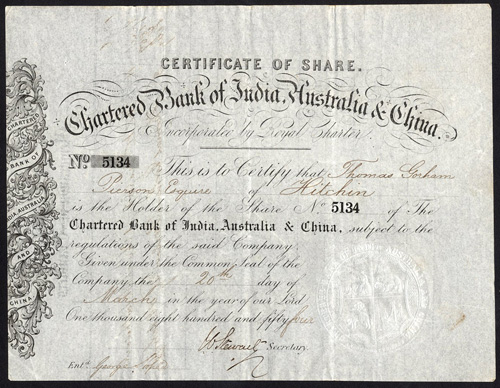 CERTIFICATE OF SHARE.
Chartered Bank of India, Australia & China.
Incorporated by Royal Charter.
No 5134 This is to Certify that Thomas Gorham
Pierson Esquire of Hitchin
is the Holder of the Share No 5134 of The
Chartered Bank of India, Australia & China, subject to the
regulations of the said Company.
Given under the Common Seal of the
Company the 20th day of
March in the year of our Lord
One thousand eight hundred and fifty four
Secretary
Entd. George
CHARTERED
BANK OF
INDIA, AUSTRALIA
AND
CHINA